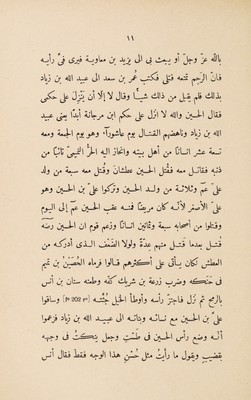 ١١
بالله عزّ وجلّ أو يبعث بى الى يزيد بن معاوية فيرى فىّ رأيه
فانّ الرحِم تمنعه قتلى فكتب عُمر بن سعد الى عبيد الله بن زياد
بذلك فلم يقبل من ذلك شيئًا وقال لا إلّا أن يَنْزِلَ على حكمى
فقال الحسين والله لا أنزل على حكم ابن مرجانة أبدًا يعنى عبيد
الله بن زياد وناهضهم القتال يوم عاشورآء وهو يوم الجمعة ومعه
تسعة عشر انسانًا من أهل بيته وانحاز اليه الحرُّ التميمىّ تائبًا من
ذنبه فقاتل معه فقُتل الحسين عطشان وقُتل معه سبعة من ولد
علىّ عَم وثلاثة من ولد الحسين وتركوا علىّ بن الحسين وهو
علىّ الأصغر لأنه كان مريضًا فمنه عقب الحسين عَم الى اليوم
وقتلوا من أصحابه سبعة وثمانين انسانًا وزعم قوم ان الحسين رضّه
قتل بعدما قتل منهم عِدّةً ولولا الضُعْف الذى أدركه من
العطش لكان يأتى على أكثرهم قالوا فرماه الحُصَيْنُ بن تميم
فى حَنَكه وضرب زرعة بن شريك كفّه وطعنه سنان بن أنس
بالرمح ثم نزل فاجتزّ رأسه وأوطأ الخيل جُثّته [fº 202 rº] وساقوا
علىّ بن الحسين مع نسائه وبناته الى عبيد الله بن زياد فزعموا
أنه وضع رأس الحسين فى طَسْت وجعل ينكُت فى وجهه
بقضيب ويقول ما رأيتُ مثل حُسْن هذا الوجه قط فقال أنس